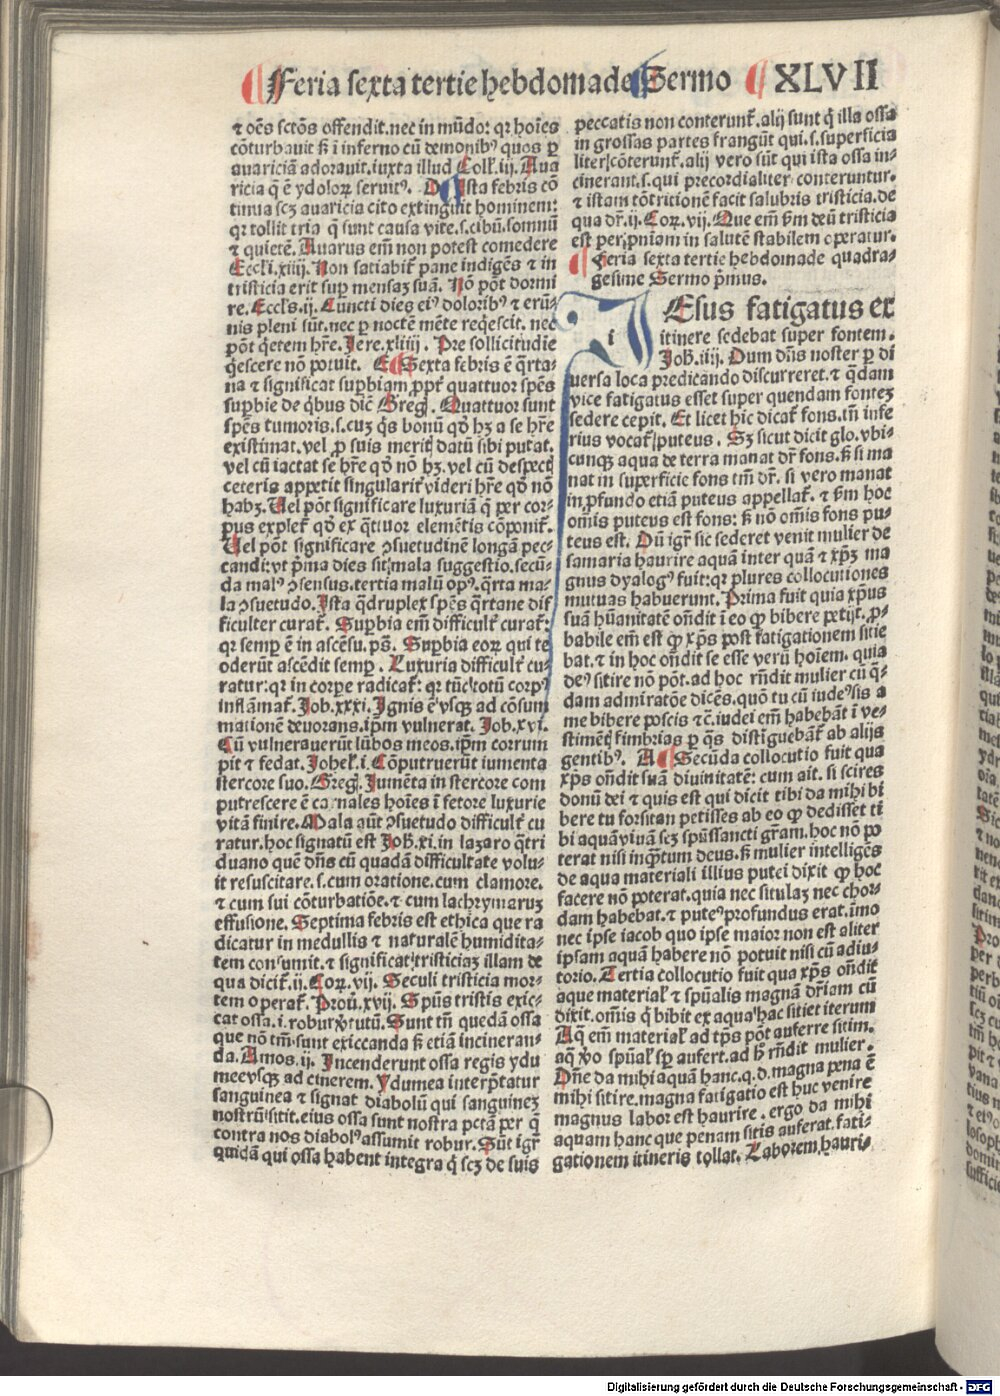 Feria sexta tertie hebdomade Sermo XLVII
⁊ oēs sctōs offendit. nec in mūdo: qꝛ hoīes
cōturbauit sꝫ ī inferno cū demonibꝰ quos ꝑ
auariciā adorauit. iuxta illud Coll. iij. Aua
ricia q̄ ē ydoloꝝ seruitꝰ. D Ista febris cō
tinua scꝫ auaricia cito extinguit hominem:
qꝛ tollit tria q̄ sunt causa vite. s. cibū. somnū
⁊ quietē. Auarus em̄ non potest comedere
Eccli. xiiij. Non satiabit̄ pane indigēs ⁊ in
tristicia erit suꝑ mensaꝫ suā. Nō pōt dormi
re. Eccls. ij. Cuncti dies eiꝰ doloribꝰ ⁊ erū⸗
nis pleni sūt. nec ꝑ noctē mēte reqͥescit. nec
pōt qͥetem hr̄e. Jere. xliiij. Pre sollicitudie
qͥescere nō potuit. E Sexta febris ē q̄rta⸗
na ⁊ significat suꝑbiam ꝓpt̄ quattuor spēs
suꝑbie de qͥbus dic̄ Greg. Quattuor sunt
spēs tumoris. s. cuꝫ qͥs bonū qd̓ hꝫ a se hr̄e
existimat. vel ꝓ suis meritꝭ datū sibi putat.
vel cū iactat se hr̄e qd̓ nō hꝫ. vel cū despectꝭ
ceteris appetit singularit̄ videri hr̄e qd̓ nō
habꝫ. Uel pōt significare luxuriā q̄ per cor⸗
pus explet̄ qd̓ ex q̄ttuor elemētis cōponit̄.
Uel pōt significare ꝯsuetudinē longā pec⸗
candi: vt pͥma dies sit mala suggestio. secū⸗
da malꝰ ꝯsensus. tertia malū opꝰ. q̄rta ma⸗
la ꝯsuetudo. Ista q̄druplex spēs q̄rtane dif
ficulter curat̄. Suꝑbia em̄ difficult̄ curat̄:
qꝛ semꝑ ē in ascēsu. pͣs. Suꝑbia eoꝝ qui te
oderūt ascēdit semꝑ. Luxuria difficult̄ cu⸗
ratur: qꝛ in corꝑe radicat̄: qꝛ tūc totū corpꝰ
inflāmat̄. Job. xxxi. Ignis ē vsqꝫ ad cōsum
mationē deuorans. ip̄m vulnerat. Job. xvi.
Cū vulnerauerūt lūbos meos. ip̄m corrum
pit ⁊ fedat. Johel. i. Cōputruerūt iumenta
stercore suo. Greg. Jumēta in stercore com
putrescere ē carnales hoīes ī fetore luxurie
vitā finire. Mala aūt ꝯsuetudo difficult̄ cu
ratur. hoc signatū est Joh. xi. in lazaro q̄tri
duano quē dn̄s cū quadā difficultate volu⸗
it resuscitare. s. cum oratione. cum clamore.
⁊ cum sui cōturbatiōe. ⁊ cum lachrymaruꝫ
effusione. Septima febris est ethica que ra
dicatur in medullis ⁊ naturalē humidita⸗
tem consumit. ⁊ significat tristiciaꝫ illam de
qua dicit̄. ij. Coꝝ. vij. Seculi tristicia mor⸗
tem operat̄. Prou. xvij. Spūs tristis exic⸗
cat ossa. i. robur ꝟtutū. Sunt tn̄ quedā ossa
que nō tm̄ sunt exiccanda sꝫ etiā incineran⸗
da. Amos. ij. Incenderunt ossa regis ydu
mee vsqꝫ ad cinerem. Ydumea interp̄tatur
sanguinea ⁊ signat diabolū qui sanguineꝫ
nostrū sitit. eius ossa sunt nostra pctā per q̄
contra nos diabolꝰ assumit robur. Sūt igr̄
quidā qui ossa habent integra qͥ scꝫ de suis
peccatis non conterunt̄. alij sunt qͥ illa ossa
in grossas partes frangūt qui. s. superficia
liter cōterunt̄. alij vero sūt qui ista ossa in⸗
cinerant. s. qui precordialiter conteruntur.
⁊ istam cōtritionē facit salubris tristicia. de
qua dr̄. ij. Coꝝ. vij. Que em̄ ẜm deū tristicia
est per pn̄iam in salutē stabilem operatur.
Feria sexta tertie hebdomade quadra⸗
gesime Sermo pͥmus.
i Esus fatigatus ex
itinere sedebat super fontem.
Joh. iiij. Dum dn̄s noster ꝑ di
uersa loca predicando discurreret. ⁊ q̄dam
vice fatigatus esset super quendam fonteꝫ
sedere cepit. Et licet hic dicat̄ fons. tn̄ infe
rius vocat̄ puteus. Sꝫ sicut dicit glo. vbi⸗
cunqꝫ aqua de terra manat dr̄ fons. sꝫ si ma
nat in superficie fons tm̄ dr̄. si vero manat
in ꝓfundo etiā puteus appellat̄. ⁊ ẜm hoc
om̄is puteus est fons: sꝫ nō om̄is fons pu⸗
teus est. Dū igr̄ sic sederet venit mulier de
samaria haurire aquā inter quā ⁊ xp̄ꝫ ma
gnus dyalogꝰ fuit: qꝛ plures collocutiones
mutuas habuerunt. Prima fuit quia xp̄us
suā hūanitatē on̄dit ī eo ꝙ bibere petijt. ꝓ⸗
babile em̄ est ꝙ xp̄s post fatigationem sitie
bat. ⁊ in hoc on̄dit se esse verū hoīem. quia
deꝰ sitire nō pōt. ad hoc rn̄dit mulier cū q̄⸗
dam admiratōe dicēs. quō tu cū iudeꝰ sis a
me bibere poscis ⁊c̄. iudei em̄ habebāt ī ve⸗
stimētꝭ fimbrias ꝑ q̄s distiguebāt̄ ab alijs
gentibꝰ. A Secūda collocutio fuit qua
xp̄s on̄dit suā diuinitatē: cum ait. si scires
donū dei ⁊ quis est qui dicit tibi da mihi bi
bere tu forsitan petisses ab eo ꝙ dedisset ti
bi aquā viuā scꝫ spūssancti gr̄am. hoc nō po
terat nisi inq̄tum deus. sꝫ mulier intelligēs
de aqua materiali illius putei dixit ꝙ hoc
facere nō poterat. quia nec situlaꝫ nec chor⸗
dam habebat. ⁊ puteꝰ profundus erat. īmo
nec ipse iacob quo ipse maior non est aliter
ipsam aquā habere nō potuit nisi cū adiu⸗
torio. Tertia collocutio fuit qua xp̄s on̄dit
aque material̓ ⁊ spūalis magnā dr̄iam cū
dixit. om̄is qͥ bibit ex aqua hac sitiet iterum
Aq̄ em̄ material̓ ad tp̄s pōt auferre sitim.
aq̄ ꝟo spūal̓ sꝑ aufert. ad hͦ rn̄dit mulier.
Dn̄e da mihi aquā hanc. q. d. magna pena ē
mihi sitire. magna fatigatio est huc venire
magnus labor est haurire. ergo da mihi
aquam hanc que penam sitis auferat. fati⸗
gationem itineris tollat. Laborem hauri⸗
Digitalisierung gefördert durch die Deutsche Forschungsgemeinschaft - DFG